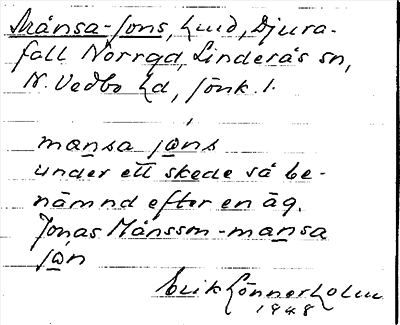 Månsa-Jons, Lund, Djura-
fall Norrgd, Linderås sn,
N. Vedbo hd, Jönk. l.
mansa jons
under ett skede så be-
nämnd efter en äg.
Jonas Månsson - mansa
jon
Erik Lönnerholm
1948